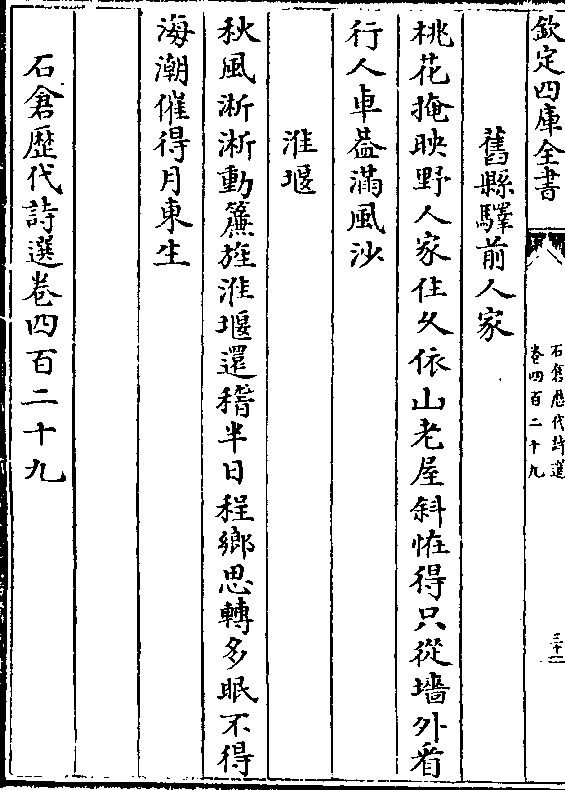 欽定四庫全書
石倉歴代詩選
卷四百二十九
三十二
舊縣驛前人家
桃花掩映野人家住乆依山老屋斜恠得只從墻外看
行人車葢滿風沙
淮堰
秋風淅淅動簾旌淮堰還稽半日程鄉思轉多眠不得
海潮催得月東生
石倉歴代詩選卷四百二十九